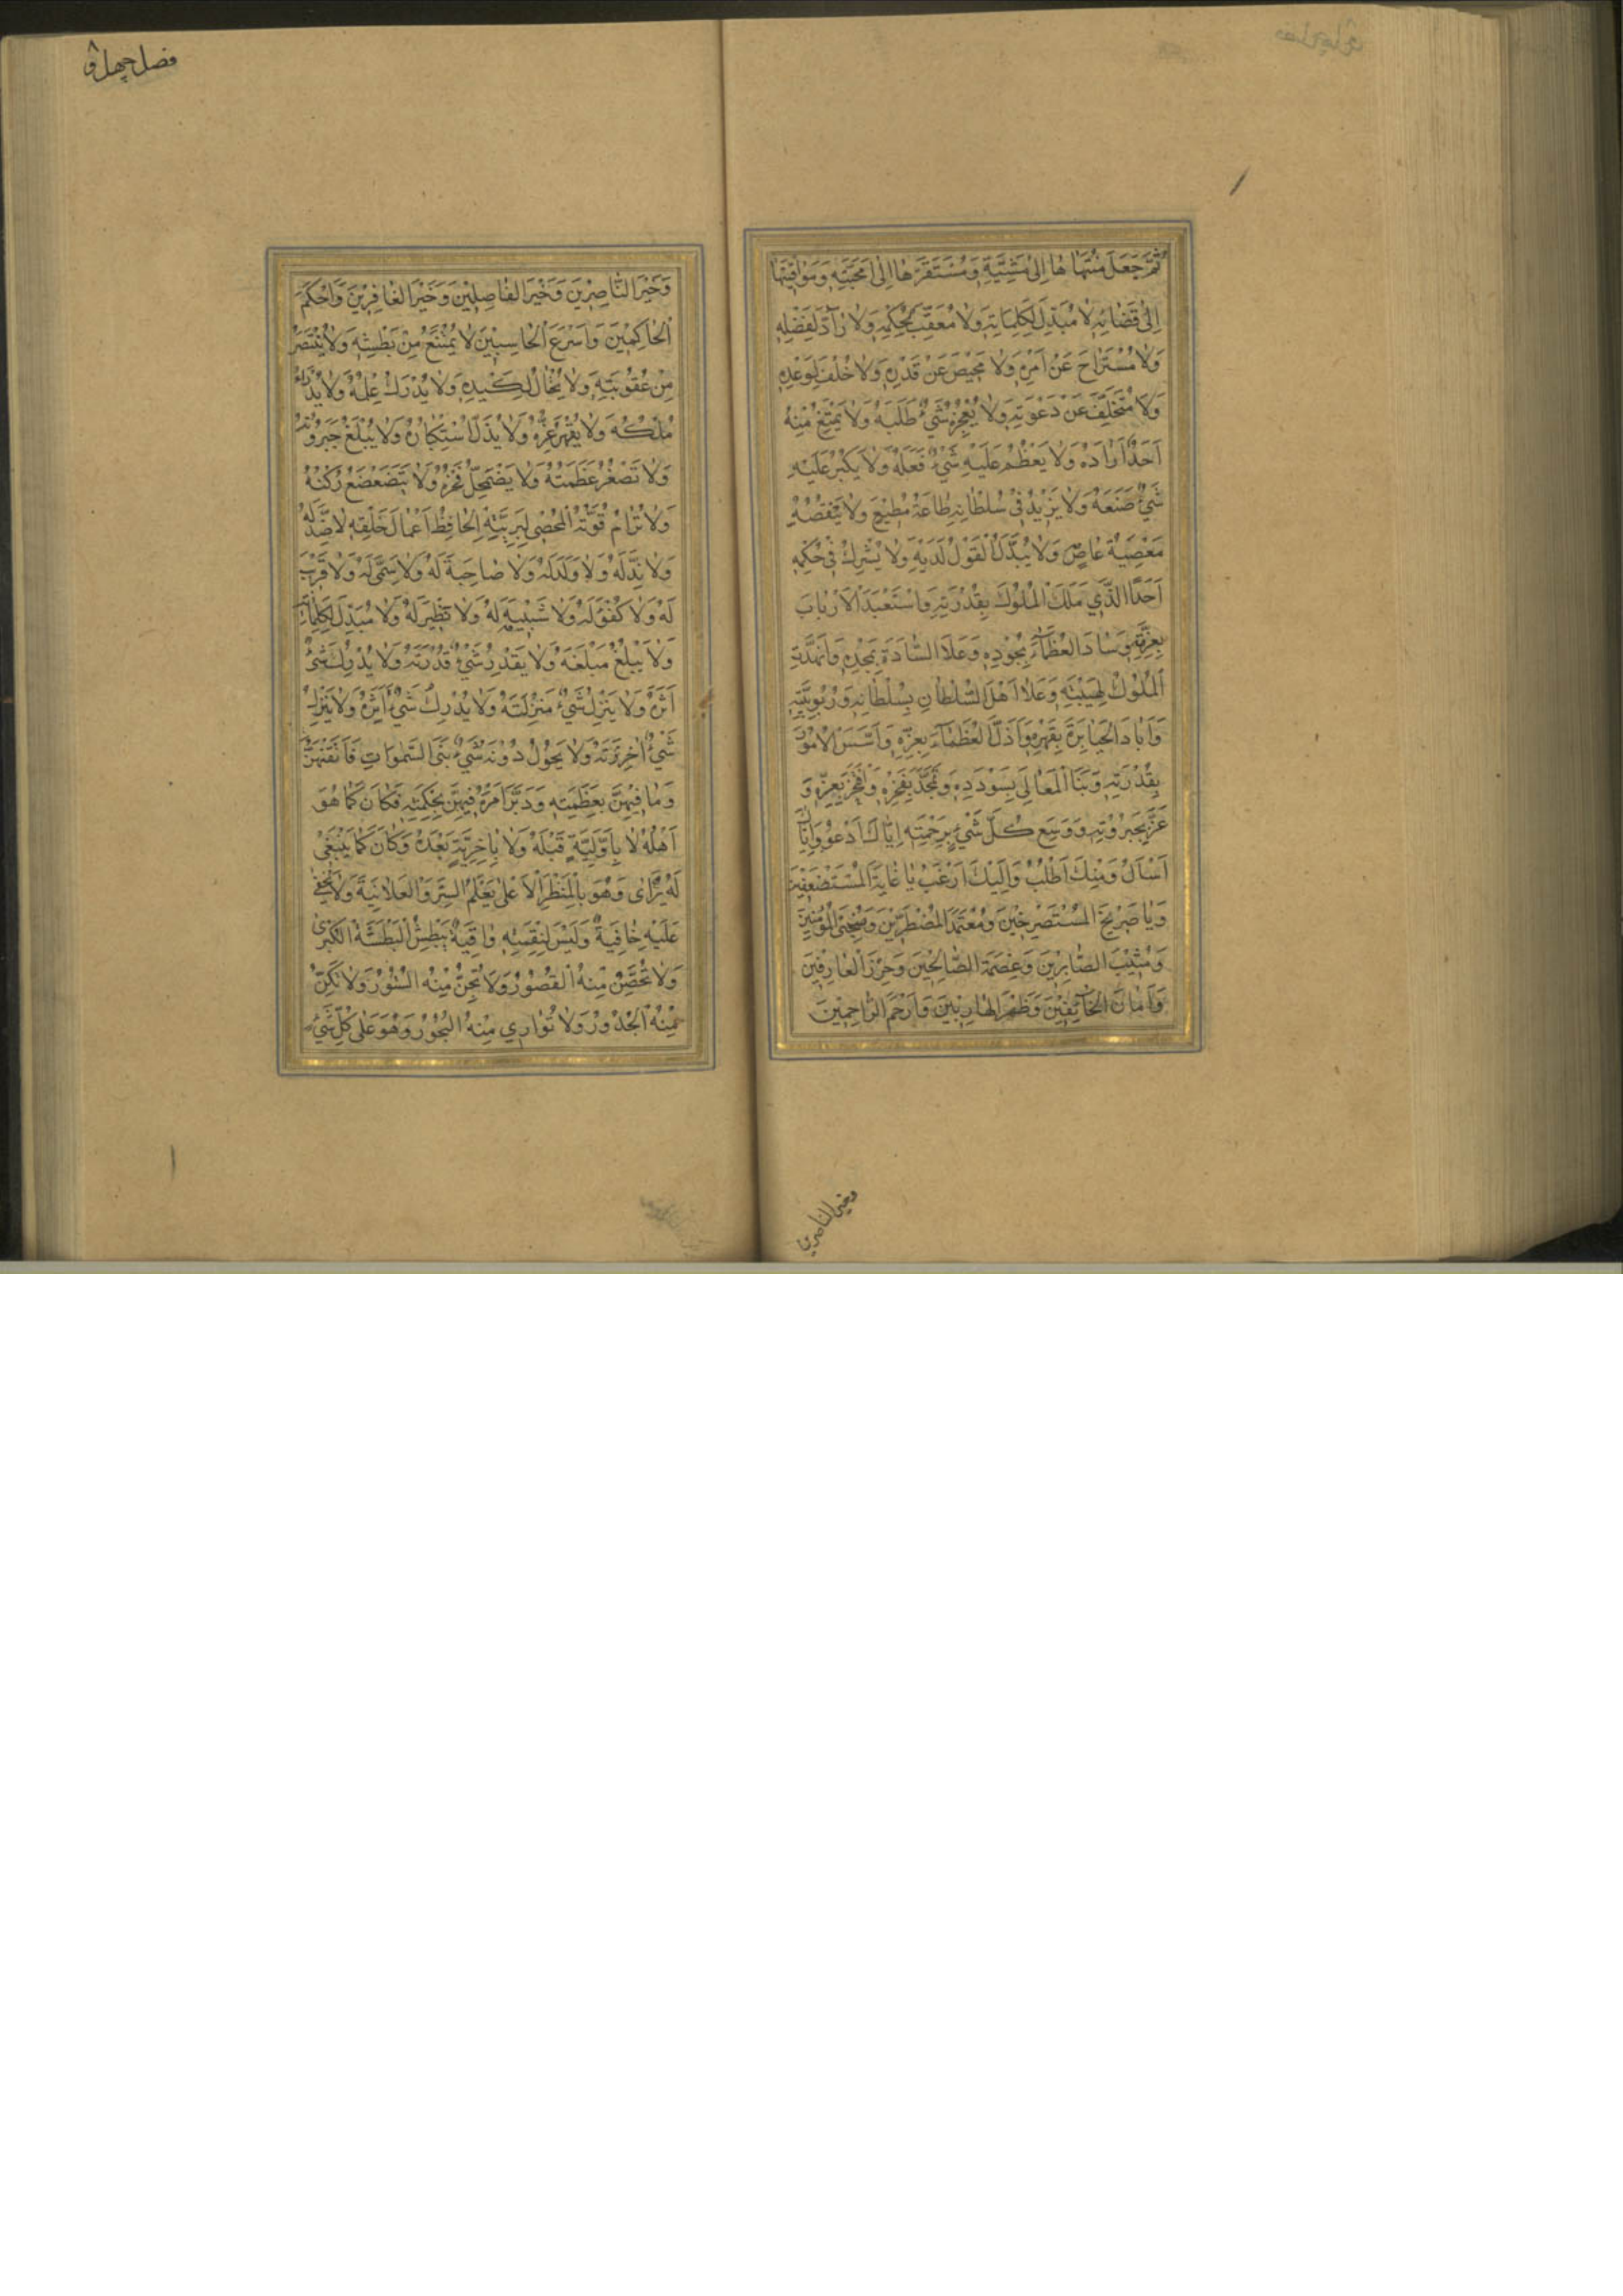 ثُمَّ جَعَلَ مُنْتَهَاهَا إِلَى مَشِيَّتِهِ وَمُسْتَقَرَّهَا إِلَى مَحَبَّتِهِ وَمَوَاقِيتَهَا
إِلَى قَضَائِهِ لَا مُبَدِّلَ لِكَلِمَاتِهِ وَلَا مُعَقِّبَ لِحُكْمِهِ وَلَا رَادَّ لِفَضْلِهِ
وَلَا مُسْتَرَاحَ عَنْ أَمْرِهِ وَلَا مَحِيصَ عَنْ قَدَرِهِ وَلَا خُلْفَ لِوَعْدِهِ
وَلَا مُتَخَلِّفَ عَنْ دَعْوَتِهِ وَلَا يُعْجِزُهُ شَيْءٌ طَلَبَهُ وَلَا يَمْتَنِعُ مِنْهُ
أَحَدٌ أَرَادَهُ وَلَا يَعْظُمُ عَلَيْهِ شَيْءٌ فَعَلَهُ وَلَا يَكْبُرُ عَلَيْهِ
شَيْءٌ صَنَعَهُ وَلَا يَزِيدُ فِي سُلْطَانِهِ طَاعَةُ مُطِيعٍ وَلَا يَنْقُصُهُ
مَعْصِيَةُ عَاصٍ وَلَا يُبَدَّلُ الْقَوْلُ لَدَيْهِ وَلَا يُشْرِكُ فِي حُكْمِهِ
أَحَدًا الَّذِي مَلَكَ الْمُلُوكَ بِقُدْرَتِهِ وَاسْتَعْبَدَ الْأَرْبَابَ
بِعِزَّتِهِ وَسَادَ الْعُظَمَاءَ بِجُودِهِ وَعَلَا السَّادَةَ بِمَجْدِهِ وَانْهَدَّتِ
الْمُلُوكُ لِهَيْبَتِهِ وَعَلَا أَهْلَ السُّلْطَانِ بِسُلْطَانِهِ وَرُبُوبِيَّتِهِ
وَأَبَادَ الْجَبَابِرَةَ بِقَهْرِهِ وَأَذَلَّ الْعُظَمَاءَ بِعِزِّهِ وَأَسَّسَ الْأُمُورَ
بِقُدْرَتِهِ وَبَنَا الْمَعَالِيَ بِسُودَدِهِ وَتَمَجَّدَ بِفَخْرِهِ وَفَخَرَ بِعِزِّهِ وَ
عَزَّ بِجَبَرُوتِهِ وَوَسِعَ كُلَّ شَيْءٍ بِرَحْمَتِهِ إِيَّاكَ أَدْعُو وَإِيَّاكَ
أَسْأَلُ وَمِنْكَ أَطْلُبُ وَإِلَيْكَ أَرْغَبُ يَا غَايَةَ الْمُسْتَضْعَفِينَ
وَيَا صَرِيخَ الْمُسْتَصْرِخِينَ وَمُعْتَمَدَ الْمُضْطَرِّينَ وَمُنْجِيَ الْمُؤْمِنِينَ
وَمُثِيبَ الصَّابِرِينَ وَعِصْمَةَ الصَّالِحِينَ وَحِرْزَ الْعَارِفِينَ
وَأَمَانَ الْخَائِفِينَ وَظَهْرَ الْهَارِبِينَ وَأَرْحَمَ الرَّاحِمِينَ
وخير الناصرين
فصل چهل و
وَخَيْرَ النَّاصِرِينَ وَخَيْرَ الْفَاصِلِينَ وَخَيْرَ الْغَافِرِينَ وَأَحْكَمَ
الْحَاكِمِينَ وَأَسْرَعَ الْحَاسِبِينَ لَا يُمْتَنَعُ مِنْ بَطْشِهِ وَلَا يُنْتَصَرُ
مِنْ عُقُوبَتِهِ وَلَا يُحْتَالُ لِكَيْدِهِ وَلَا يُدْرَكُ عِلْمُهُ وَلَا يُدْرَأُ
مُلْكُهُ وَلَا يُقْهَرُ عِزُّهُ وَلَا يُذَلُّ اسْتِكْبَارُهُ وَلَا يُبْلَغُ جَبَرُوتُهُ
وَلَا تَصْغُرُ عَظَمَتُهُ وَلَا يَضْمَحِلُّ فَخْرُهُ وَلَا يَتَضَعْضَعُ رُكْنُهُ
وَلَا تُرَامُ قُوَّتُهُ الْمُحْصِي لِبَرِيَّتِهِ الْحَافِظُ أَعْمَالَ خَلْقِهِ لَا ضِدَّ لَهُ
وَلَا نِدَّ لَهُ وَلَا وَلَدَ لَهُ وَلَا صَاحِبَةَ لَهُ وَلَا سَمِيَّ لَهُ وَلَا قَرِيبَ
لَهُ وَلَا كُفْوَ لَهُ وَلَا شَبِيهَ لَهُ وَلَا نَظِيرَ لَهُ وَلَا مُبَدِّلَ لِكَلِمَاتِهِ
وَلَا يَبْلُغُ مَبْلَغَهُ وَلَا يَقْدِرُ شَيْءٌ قُدْرَتَهُ وَلَا يُدْرِكُ شَيْءٌ
أَثَرَهُ وَلَا يَنْزِلُ شَيْءٌ مَنْزِلَتَهُ وَلَا يُدْرِكُ شَيْءٌ أَثَرَهُ وَلَا يَنْزِلُ
شَيْءٌ وَلَا يَحُولُ دُونَهُ شَيْءٌ بَنَى السَّمَوَاتِ فَأَتْقَنَهُنَّ
وَمَا فِيهِنَّ بِعَظَمَتِهِ وَدَبَّرَ أَمْرَهُ فِيهِنَّ بِحِكْمَتِهِ فَكَانَ كَمَا هُوَ
أَهْلُهُ لَا بِأَوَّلِيَّةٍ قَبْلَهُ وَلَا بِآخِرِيَّةٍ بَعْدَهُ وَكَانَ كَمَا يَنْبَغِي
لَهُ يَرَى وَهُوَ بِالْمَنْظَرِ الْأَعْلَى يَعْلَمُ السِّرَّ وَالْعَلَانِيَةَ وَلَا تَخْفَى
عَلَيْهِ خَافِيَةٌ وَلَيْسَ لِنِقْمَتِهِ وَاقِيَةٌ يَبْطِشُ الْبَطْشَةَ الْكُبْرَى
وَلَا تُحَصِّنُ مِنْهُ الْقُصُورُ وَلَا تُجِنُّ مِنْهُ السُّتُورُ وَلَا تُكِنُّ
مِنْهُ الْجُدُورُ وَلَا تُوَارِي مِنْهُ الْبُحُورُ وَهُوَ عَلَى كُلِّ شَيْءٍ